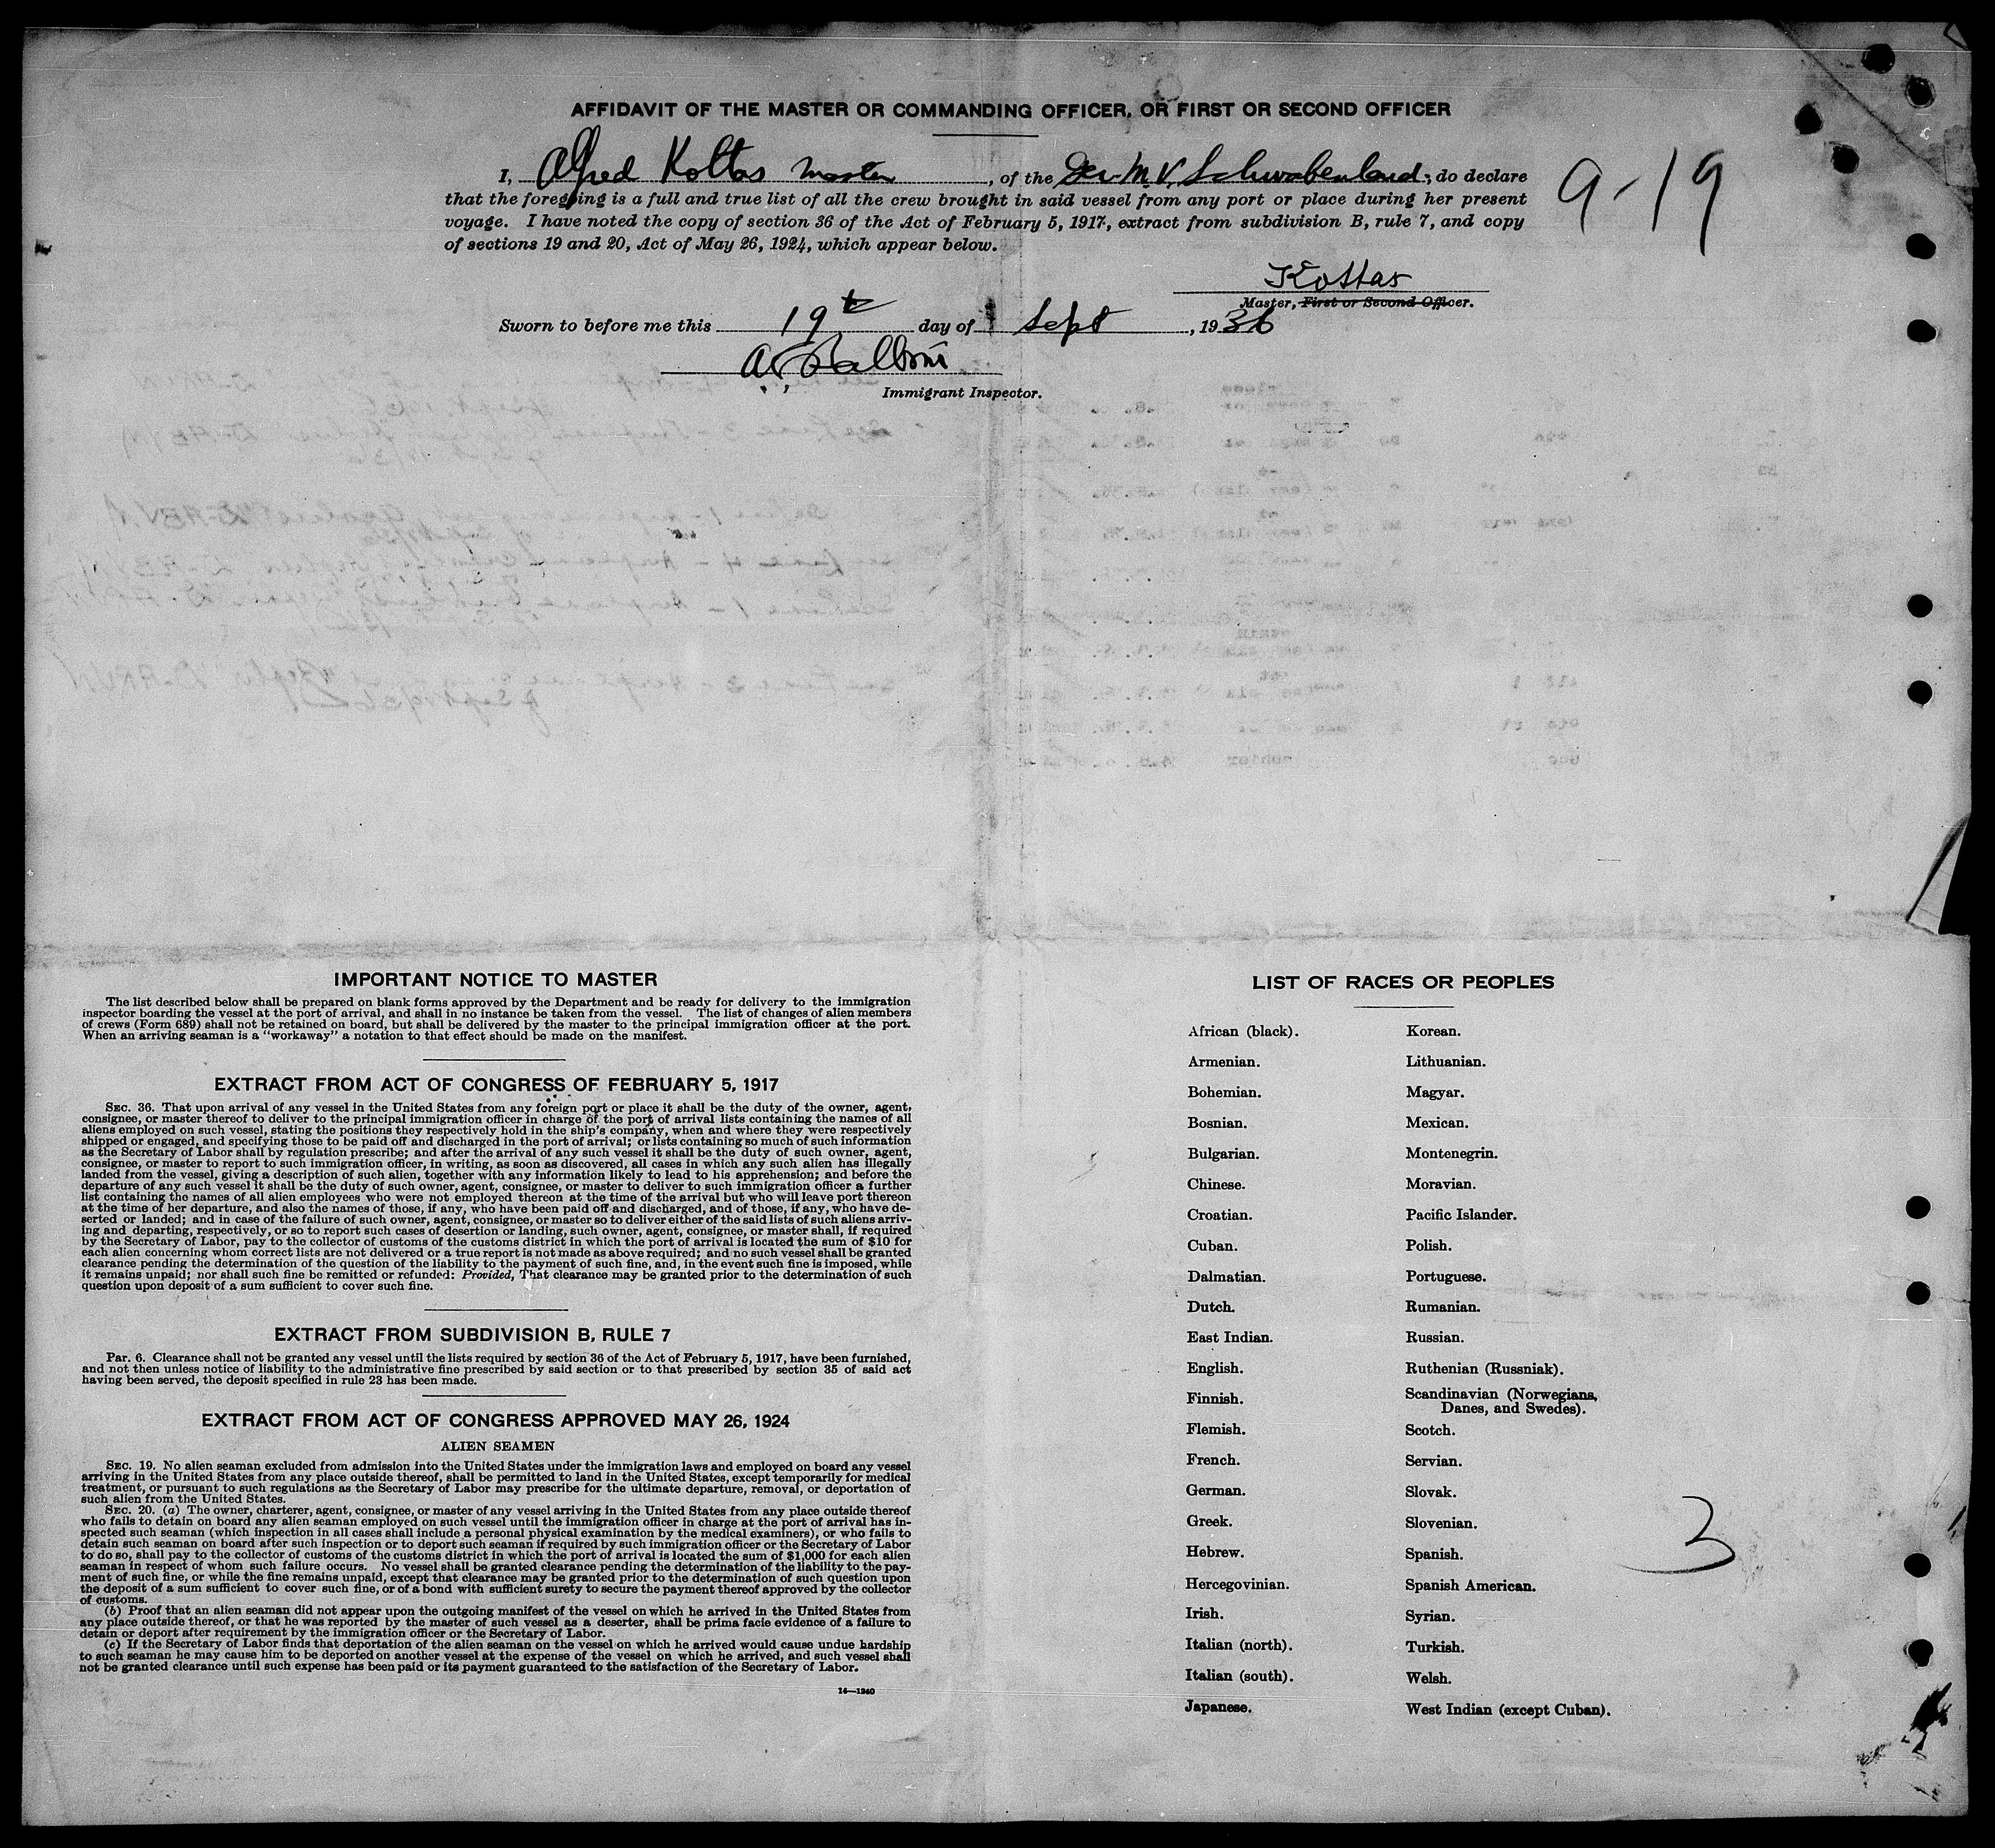 AFFIDAVIT OF THE MASTER OR COMMANDING OFFICER, OR FIRST OR SECOND OFFICER
I, Alfred Kottas master, of the Ger. M.V. Schwabenland, do declare
that the foregoing is a full and true list of all the crew brought in said vessel from any port or place during her present
voyage. I have noted the copy of section 36 of the Act of February 5, 1917, extract from subdivision B, rule 7, and copy
of sections 19 and 20, Act of May 26, 1924, which appear below.
9-19
Kottas
Master, First or Second Officer.
Sworn to before me this 19th day of Sept, 1936
Immigrant Inspector.
IMPORTANT NOTICE TO MASTER
The list described below shall be prepared on blank forms approved by the Department and be ready for delivery to the immigration
inspector boarding the vessel at the port of arrival, and shall in no instance be taken from the vessel. The list of changes of alien members
of crews (Form 689) shall not be retained on board, but shall be delivered by the master to the principal immigration officer at the port.
When an arriving seaman is a "workaway" a notation to that effect should be made on the manifest.
EXTRACT FROM ACT OF CONGRESS OF FEBRUARY 5, 1917
SEC. 36. That upon arrival of any vessel in the United States from any foreign port or place it shall be the duty of the owner, agent,
consignee, or master thereof to deliver to the principal immigration officer in charge of the port of arrival lists containing the names of all
aliens employed on such vessel, stating the positions they respectively hold in the ship's company, when and where they were respectively
shipped or engaged, and specifying those to be paid off and discharged in the port of arrival; or lists containing so much of such information
as the Secretary of Labor shall by regulation prescribe; and after the arrival of any such vessel it shall be the duty of such owner, agent,
consignee, or master to report to such immigration officer, in writing, as soon as discovered, all cases in which any such alien has illegally
landed from the vessel, giving a description of such alien, together with any information likely to lead to his apprehension; and before the
departure of any such vessel it shall be the duty of such owner, agent, consignee, or master to deliver to such immigration officer a further
list containing the names of all alien employees who were not employed thereon at the time of the arrival but who will leave port thereon
at the time of her departure, and also the names of those, if any, who have been paid off and discharged, and of those, if any, who have de-
serted or landed; and in case of the failure of such owner, agent, consignee, or master so to deliver either of the said lists of such aliens arriv-
ing and departing, respectively, or so to report such cases of desertion or landing, such owner, agent, consignee, or master shall, if required
by the Secretary of Labor, pay to the collector of customs of the customs district in which the port of arrival is located the sum of $10 for
each alien concerning whom correct lists are not delivered or a true report is not made as above required; and no such vessel shall be granted
clearance pending the determination of the question of the liability to the payment of such fine, and, in the event such fine is imposed, while
it remains unpaid; nor shall such fine be remitted or refunded: Provided, That clearance may be granted prior to the determination of such
question upon deposit of a sum sufficient to cover such fine.
EXTRACT FROM SUBDIVISION B, RULE 7
PAR. 6. Clearance shall not be granted any vessel until the lists required by section 36 of the Act of February 5, 1917, have been furnished,
and not then unless notice of liability to the administrative fine prescribed by said section or to that prescribed by section 35 of said act
having been served, the deposit specified in rule 23 has been made.
EXTRACT FROM ACT OF CONGRESS APPROVED MAY 26, 1924
ALIEN SEAMEN
SEC. 19. No alien seaman excluded from admission into the United States under the immigration laws and employed on board any vessel
arriving in the United States from any place outside thereof, shall be permitted to land in the United States, except temporarily for medical
treatment, or pursuant to such regulations as the Secretary of Labor may prescribe for the ultimate departure, removal, or deportation of
such alien from the United States.
SEC. 20. (a) The owner, charterer, agent, consignee, or master of any vessel arriving in the United States from any place outside thereof
who fails to detain on board any alien seaman employed on such vessel until the immigration officer in charge at the port of arrival has in-
spected such seaman (which inspection in all cases shall include a personal physical examination by the medical examiners), or who fails to
detain such seaman on board after such inspection or to deport such seaman if required by such immigration officer or the Secretary of Labor
to do so, shall pay to the collector of customs of the customs district in which the port of arrival is located the sum of $1,000 for each alien
seaman in respect of whom such failure occurs. No vessel shall be granted clearance pending the determination of the liability to the pay-
ment of such fine, or while the fine remains unpaid, except that clearance may be granted prior to the determination of such question upon
the deposit of a sum sufficient to cover such fine, or of a bond with sufficient surety to secure the payment thereof approved by the collector
of customs.
(b) Proof that an alien seaman did not appear upon the outgoing manifest of the vessel on which he arrived in the United States from
any place outside thereof, or that he was reported by the master of such vessel as a deserter, shall be prima facie evidence of a failure to
detain or deport after requirement by the immigration officer or the Secretary of Labor.
(c) If the Secretary of Labor finds that deportation of the alien seaman on the vessel on which he arrived would cause undue hardship
to such seaman he may cause him to be deported on another vessel at the expense of the vessel on which he arrived, and such vessel shall
not be granted clearance until such expense has been paid or its payment guaranteed to the satisfaction of the Secretary of Labor.
14—1240
LIST OF RACES OR PEOPLES
African (black). Korean.
Armenian. Lithuanian.
Bohemian. Magyar.
Bosnian. Mexican.
Bulgarian. Montenegrin.
Chinese. Moravian.
Croatian. Pacific Islander.
Cuban. Polish.
Dalmatian. Portuguese.
Dutch. Rumanian.
East Indian. Russian.
English. Ruthenian (Russniak).
Finnish. Scandinavian (Norwegians,
Danes, and Swedes).
Flemish. Scotch.
French. Servian.
German. Slovak.
Greek. Slovenian.
Hebrew. Spanish.
Hercegovinian. Spanish American.
Irish. Syrian.
Italian (north). Turkish.
Italian (south). Welsh.
Japanese. West Indian (except Cuban).
3